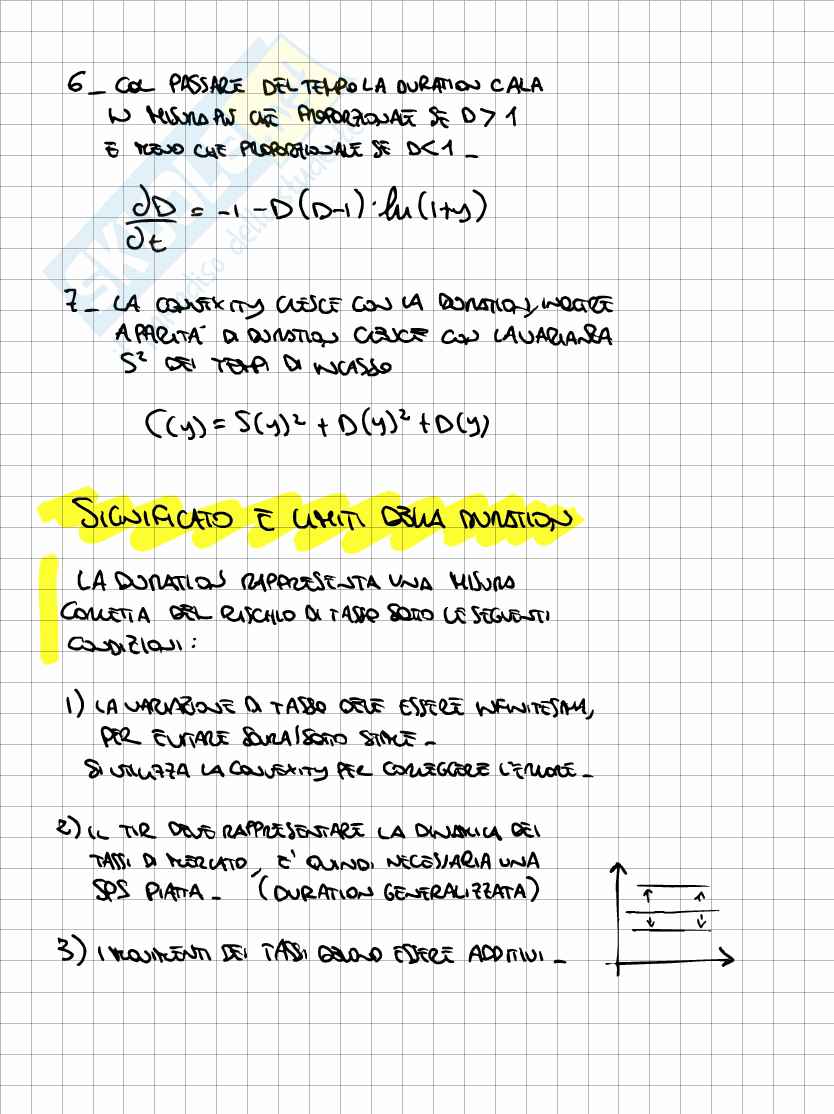 6_ COL PASSARE DEL TEMPO LA DURATION CALA
IN MISURA PIÙ CHE PROPORZIONALE SE D > 1
E MENO CHE PROPORZIONALE SE D<1 _
∂D/∂t = -1 - D(D-1)·ln(1+y)
7_ LA CONVEXITY CRESCE CON LA DURATION, INOLTRE
A PARITÀ DI DURATION CRESCE CON LA VARIANZA
S² DEI TEMPI DI INCASSO
C(y) = S(y)² + D(y)² + D(y)
SIGNIFICATO E LIMITI DELLA DURATION
LA DURATION RAPPRESENTA UNA MISURA
CORRETTA DEL RISCHIO DI TASSO SOTTO LE SEGUENTI
CONDIZIONI:
1) LA VARIAZIONE DI TASSO DEVE ESSERE INFINITESIMA,
PER EVITARE SOVRA/SOTTO STIME _
SI UTILIZZA LA CONVEXITY PER CORREGGERE L'ERRORE _
2) IL TIR DEVE RAPPRESENTARE LA DINAMICA DEI
TASSI DI MERCATO, E' QUINDI NECESSARIA UNA
SPS PIATTA _ (DURATION GENERALIZZATA)
3) I MOVIMENTI DEI TASSI DEVONO ESSERE ADDITIVI _